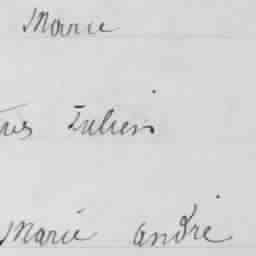 Marie
Julien
Marie André